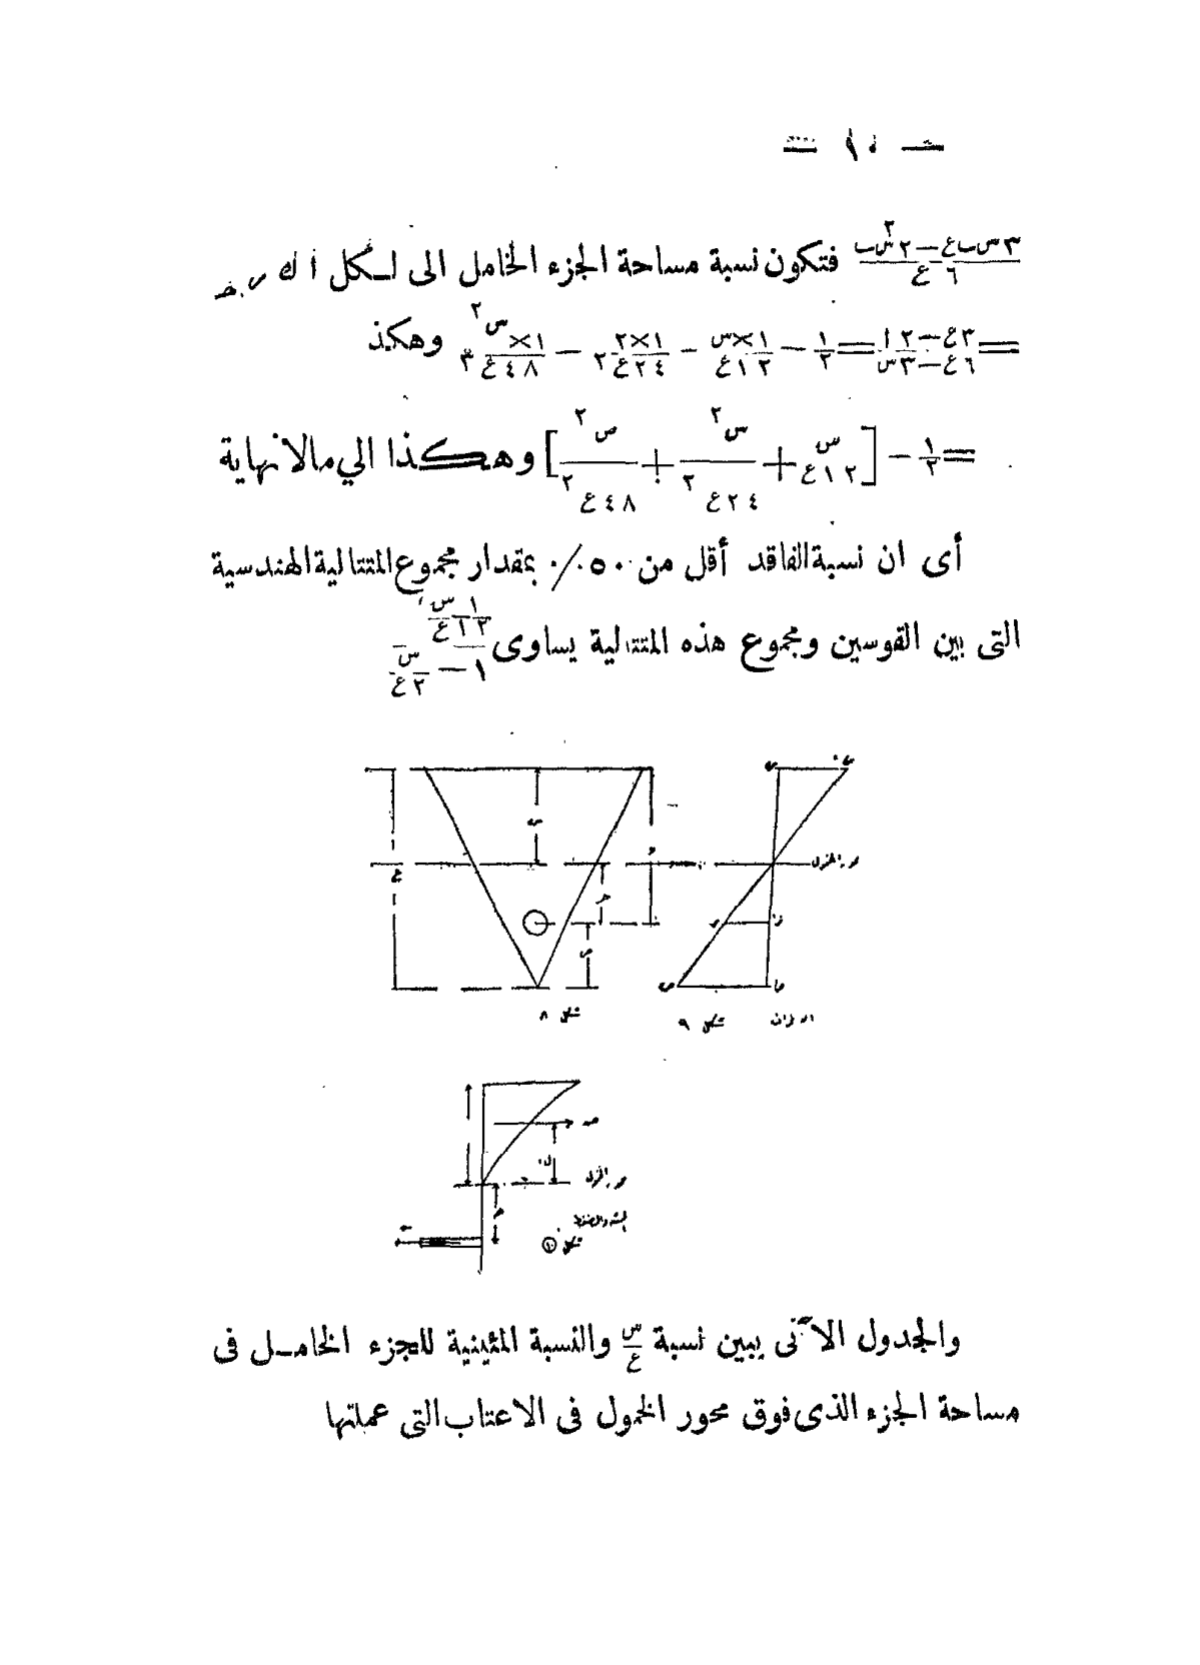 — ١٥ —
٣ س ب ع — ٢ س٢ ب / ٦ ع فتكون نسبة مساحة الجزء الخامل الى الكل أ ك
= ٣ع — ٢ / ٦ع — ٣س = ١/٢ — ١×س / ١٢ع — ١×٢ / ٢٤ع٢ — ١×س٢ / ٤٨ع٣ وهكذ
= ١/٢ — [ س / ١٢ع + س٢ / ٢٤ع٢ + ص٢ / ٤٨ع٢ ] وهكذا الي مالانهاية
أى ان نسبة الفاقد أقل من ٥٠٪ بمقدار مجموع المتتالية الهندسية
التى بين القوسين ومجموع هذه المتتالية يساوى ١ س / ١٢ ع / ١ — س / ٢ع
ع
محور الخمول
شكل ٨
شكل ٩
محور الخمول
شكل ١٠
والجدول الآتى يبين نسبة س/ع والنسبة المئينية للجزء الخامل فى
مساحة الجزء الذى فوق محور الخمول فى الاعتاب التى عملتها